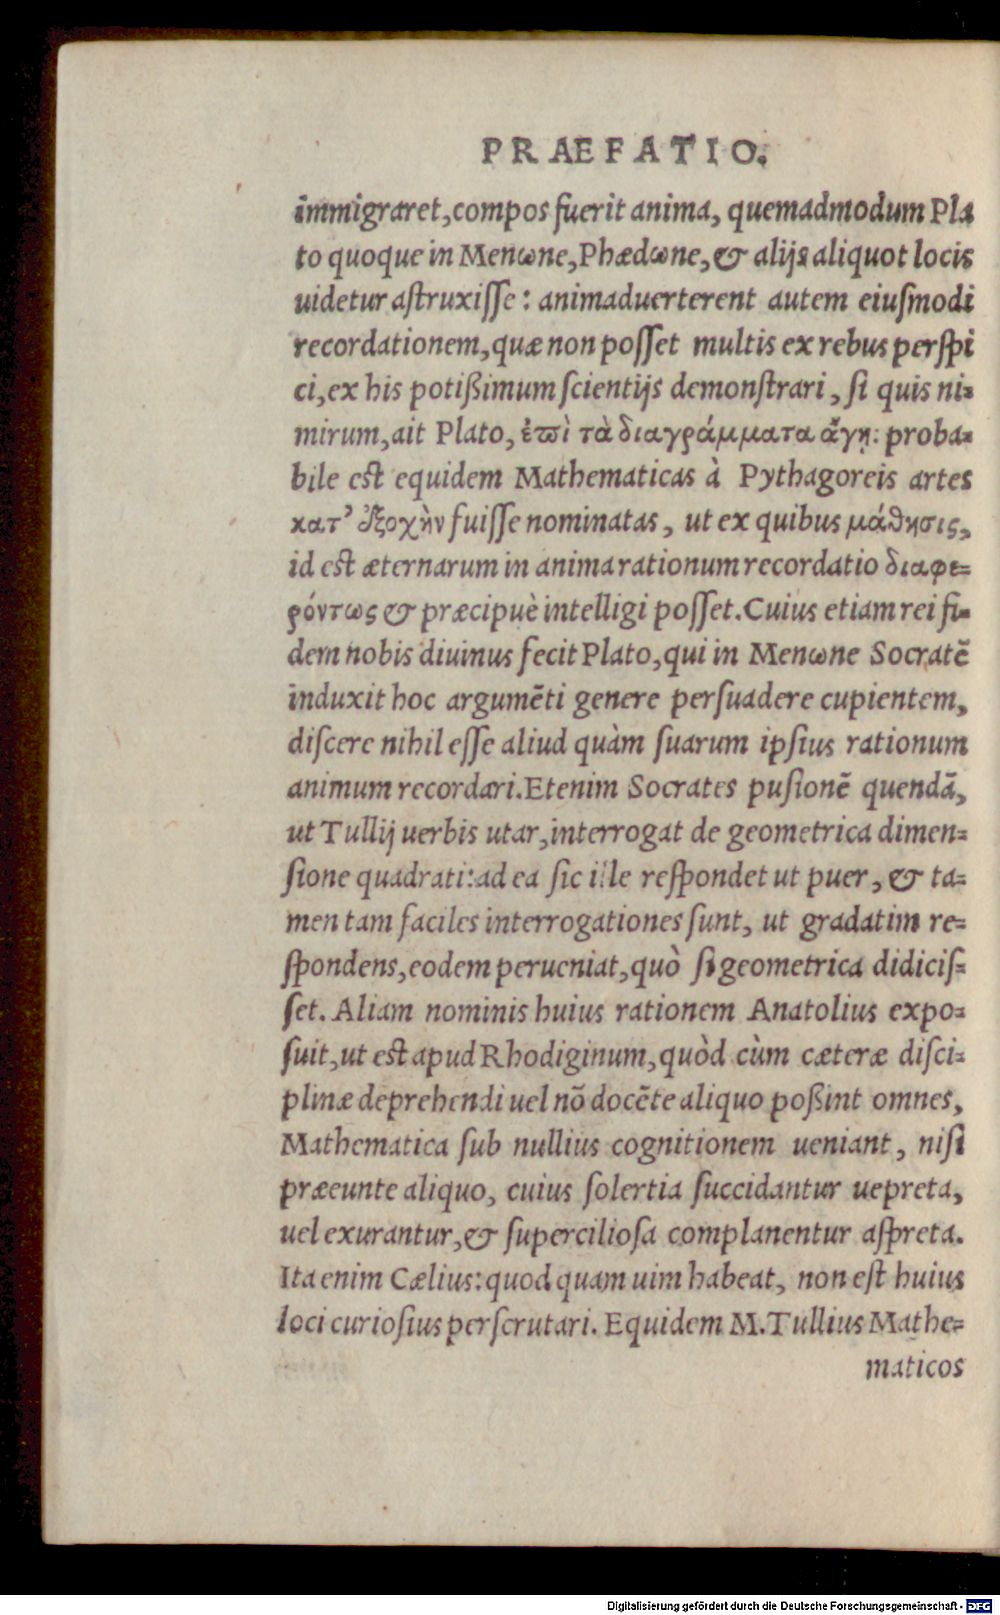 PRAEFATIO.
immigraret, compos fuerit anima, quemadmodum Pla
to quoque in Menωne, Phædωne, & alijs aliquot locis
uidetur aſtruxiſſe: animaduerterent autem eiuſmodi
recordationem, quæ non poſſet multis ex rebus perſpi
ci, ex his potißimum ſcientijs demonſtrari, ſi quis ni-
mirum, ait Plato, ἐπὶ τὰ διαγράμματα ἄγῃ: proba-
bile eſt equidem Mathematicas à Pythagoreis artes
κατ’ ἐξοχὴν fuiſſe nominatas, ut ex quibus μάθησις,
id eſt æternarum in anima rationum recordatio διαφε-
ρόντως & præcipuè intelligi poſſet. Cuius etiam rei fi-
dem nobis diuinus fecit Plato, qui in Menωne Socratẽ
induxit hoc argumẽti genere perſuadere cupientem,
diſcere nihil eſſe aliud quàm ſuarum ipſius rationum
animum recordari. Etenim Socrates puſionẽ quendã,
ut Tullij uerbis utar, interrogat de geometrica dimen-
ſione quadrati: ad ea ſic ille reſpondet ut puer, & ta-
men tam faciles interrogationes ſunt, ut gradatim re-
ſpondens, eodem perueniat, quò ſi geometrica didiciſ-
ſet. Aliam nominis huius rationem Anatolius expo-
ſuit, ut eſt apud Rhodiginum, quòd cùm cæteræ diſci-
plinæ deprehendi uel nõ docẽte aliquo poßint omnes,
Mathematica ſub nullius cognitionem ueniant, niſi
præeunte aliquo, cuius ſolertia ſuccidantur uepreta,
uel exurantur, & ſupercilioſa complanentur aſpreta.
Ita enim Cælius: quod quam uim habeat, non eſt huius
loci curioſius perſcrutari. Equidem M. Tullius Mathe-
maticos
Digitalisierung gefördert durch die Deutsche Forschungsgemeinschaft - DFG